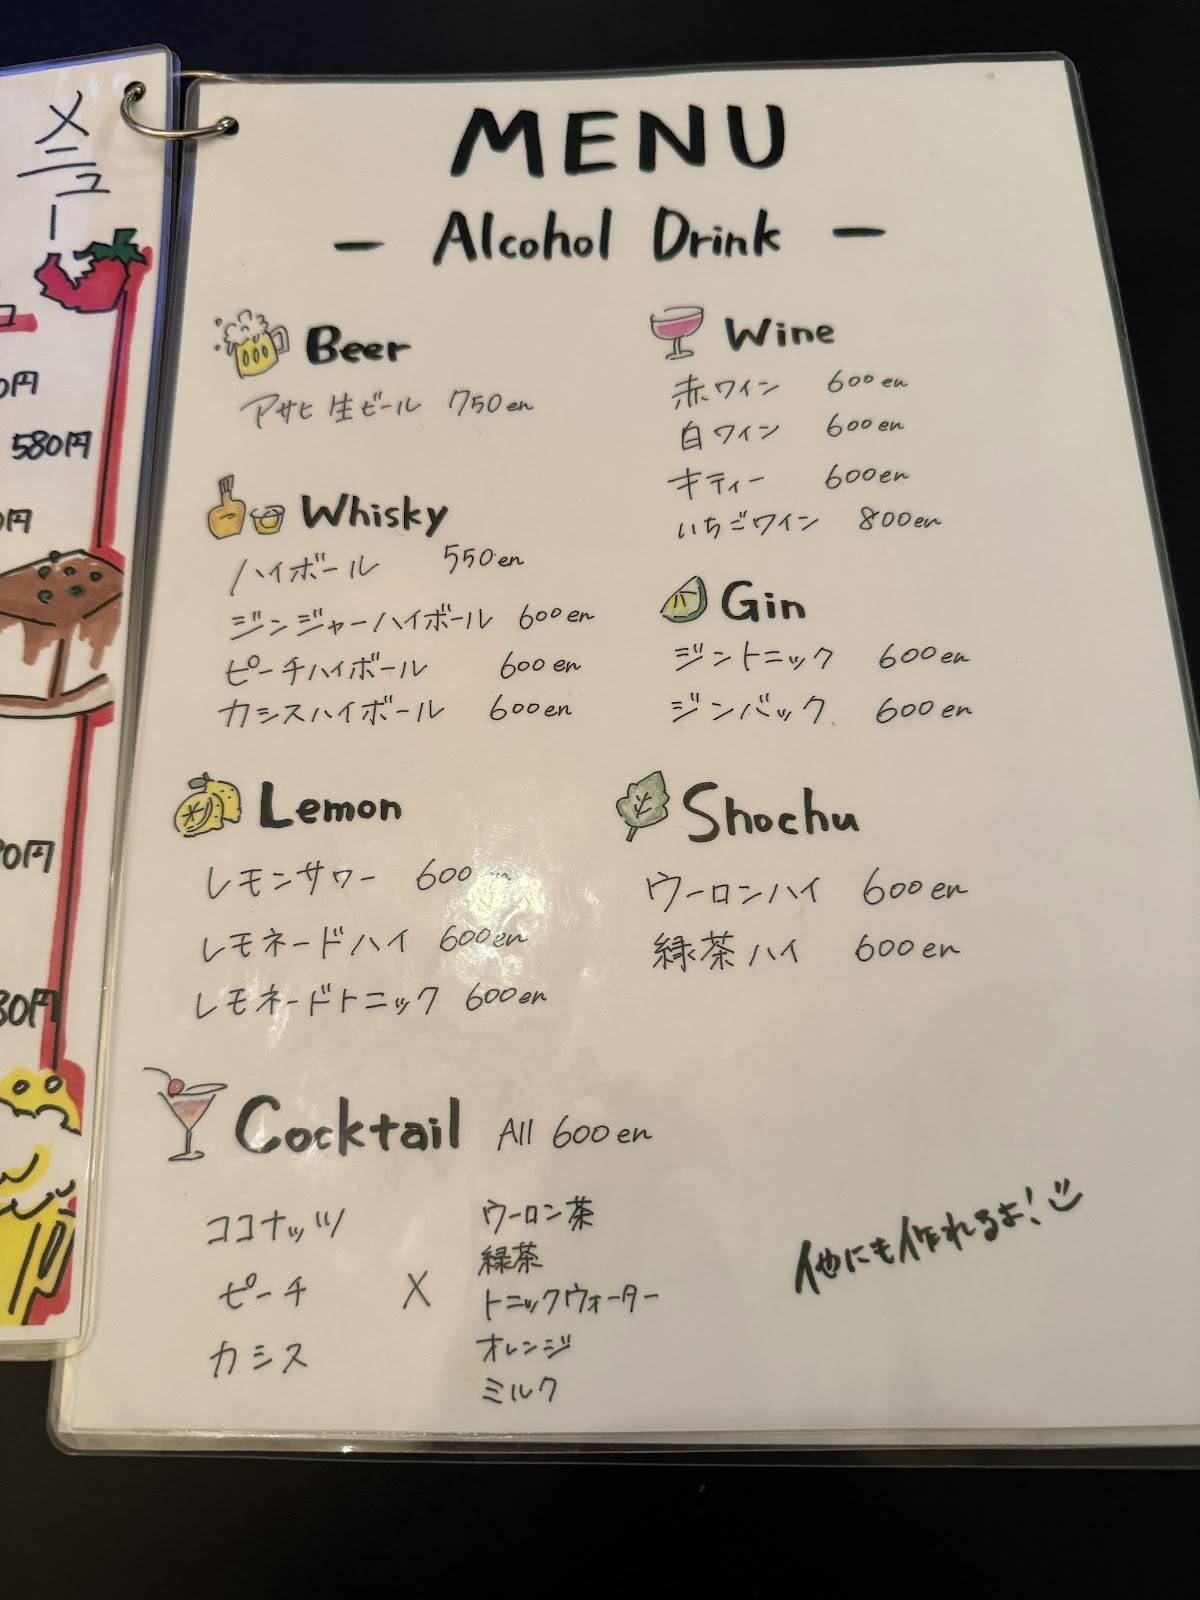 メニュー
580円
MENU
- Alcohol Drink -
Beer
アサヒ生ビール 750en
Whisky
ハイボール 550en
ジンジャーハイボール 600en
ピーチハイボール 600en
カシスハイボール 600en
Lemon
レモンサワー 600en
レモネードハイ 600en
レモネードトニック 600en
Wine
赤ワイン 600en
白ワイン 600en
キティー 600en
いちごワイン 800en
Gin
ジントニック 600en
ジンバック 600en
Shochu
ウーロンハイ 600en
緑茶ハイ 600en
Cocktail All 600en
ココナッツ
ピーチ
カシス
X
ウーロン茶
緑茶
トニックウォーター
オレンジ
ミルク
他にも作れるよ!